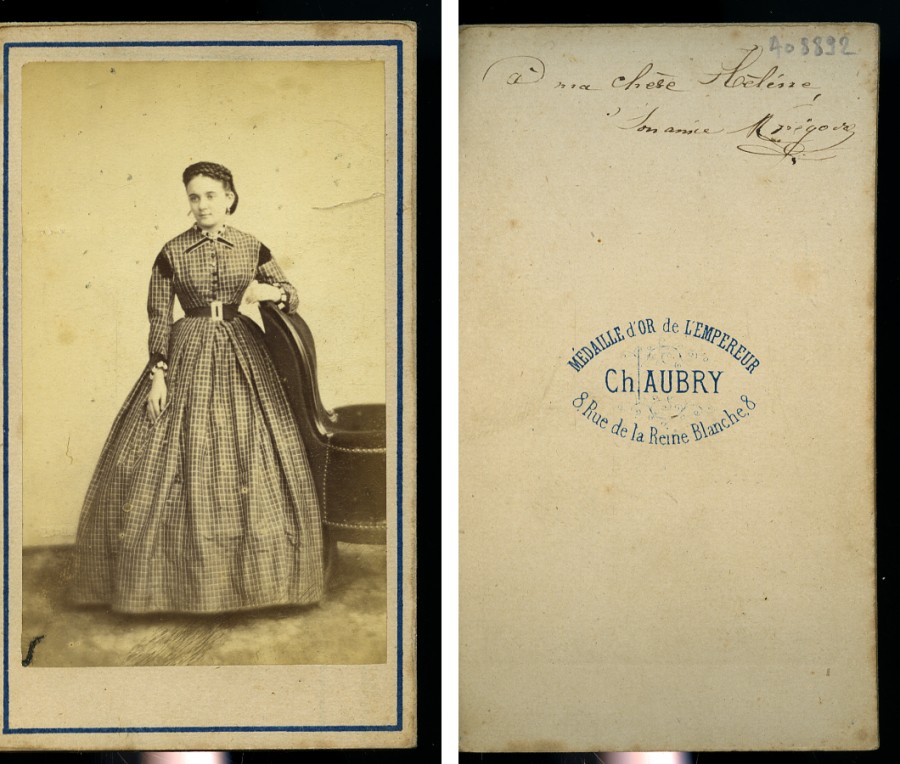 A08892
à ma chère Hélène,
Son amie
MÉDAILLE d'OR de L'EMPEREUR
Ch. AUBRY
8, Rue de la Reine Blanche, 8